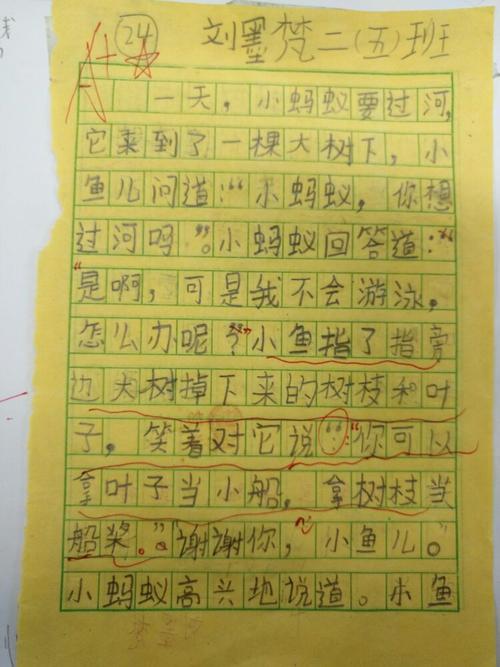 A+ 24 刘墨梵二(五)班
一天，小蚂蚁要过河，
它来到了一棵大树下，小
鱼儿问道：“小蚂蚁，你想
过河吗”。小蚂蚁回答道：“
“是啊，可是我不会游泳，
怎么办呢？”小鱼指了指旁
边大树掉下来的树枝和叶
子，笑着对它说：“你可以
拿叶子当小船，拿树枝当
船桨。”“谢谢你，小鱼儿。”
小蚂蚁高兴地说道。小鱼